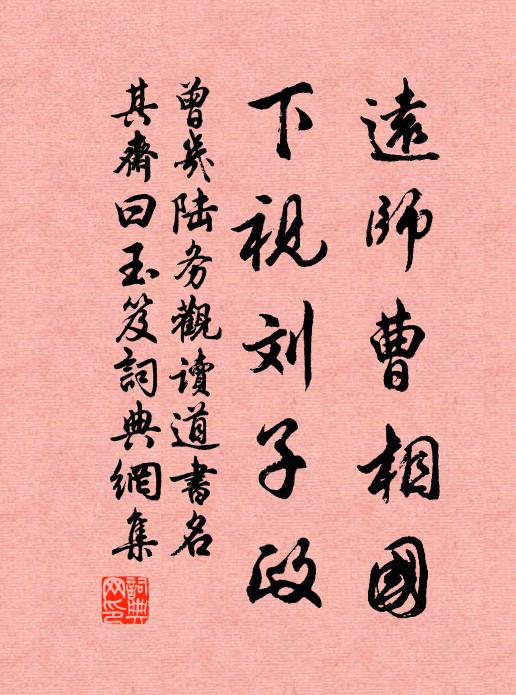 遠師曹相國
下視刘子政
曾㡬陆务觀讀道書名
其齋曰玉笈詞典網集
詞典網印